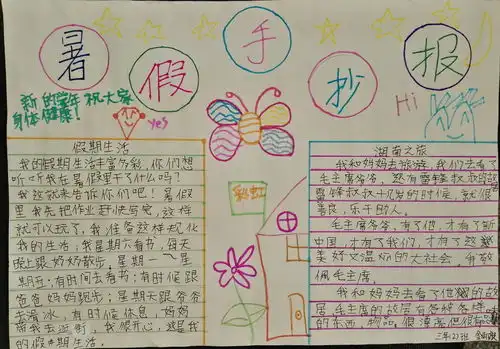 暑假手抄报
新的学年祝大家
身体健康!
yes
Hi
彩虹
假期生活
我的假期生活丰富多彩,你们想
听听我在暑假里干了什么吗?
我这就来告诉你们吧!暑假
里我先把作业赶快写完,这样
就可以玩了,我准备这样规化
我的生活:我星期六看书,每天
晚上跟奶奶散步,星期一~星
期五:有时间去看书;有时候跟
爸爸妈妈跑步;星期天跟爸爸
去滑冰,有时候休息,妈妈
带我去逛街,我很开心,这是我
的假期生活。
湖南之旅
我和妈妈去旅游,我们去看了
毛主席爷爷,还有雷锋叔叔
雷锋叔叔十几岁的时候,就很
善良,乐于助人。
毛主席爷爷,有了他,才有了新
中国,才有了我们,才有了这
美好又温暖的大社会,
佩毛主席。
我和妈妈去看了他的故
居,毛主席的故居有各种各样
的东西,物品,很漂亮但很
三年(2)班